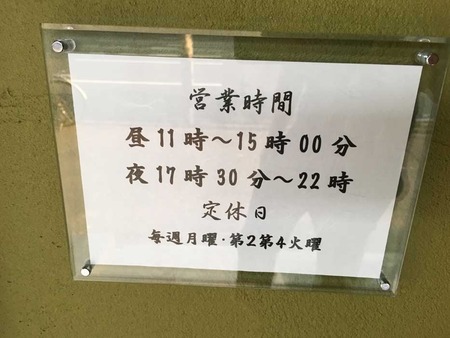 営業時間
昼11時～15時00分
夜17時30分～22時
定休日
毎週月曜・第2第4火曜